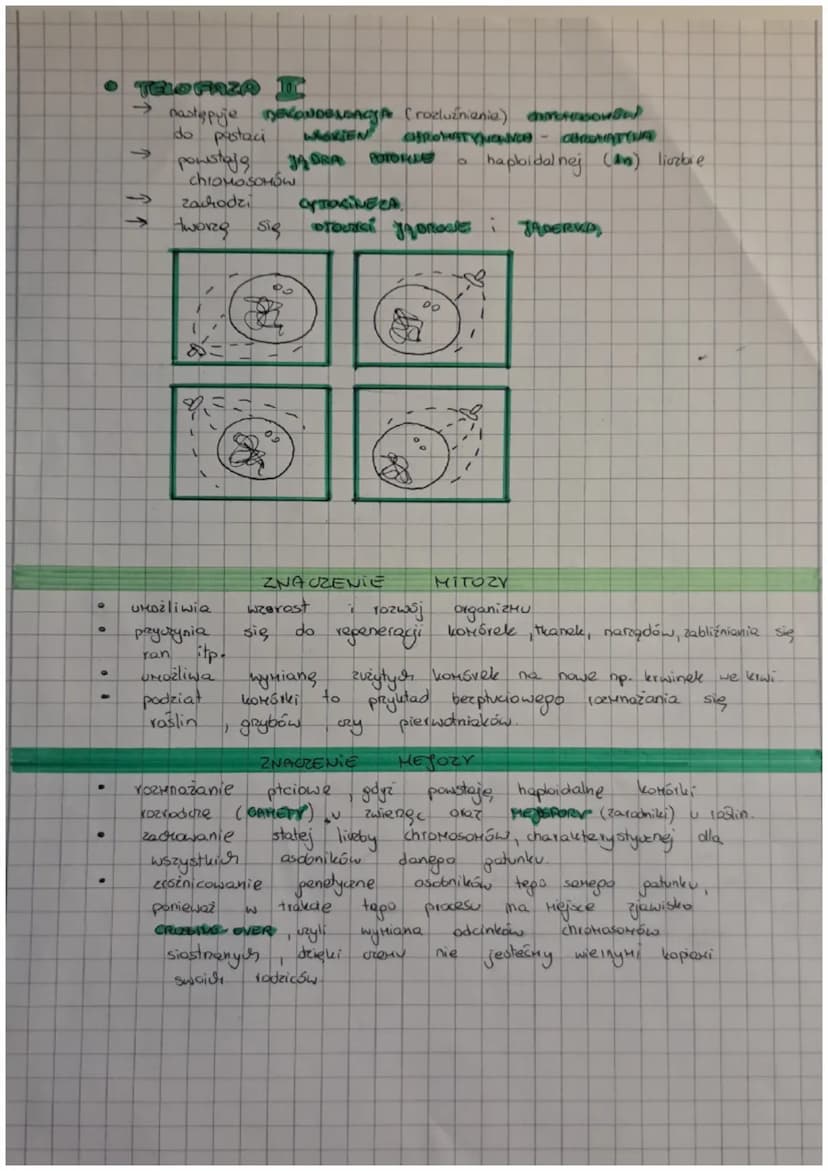 • TELOFAZA II
→ następuje DEKONDENSACJA (rozluźnianie) CHROMOSOMÓW
do postaci WŁÓKIEN CHROMATYNOWYCH - CHROMATYNA
→ powstają JĄDRA POTOMNE o haploidalnej (1n) liczbie
chromosomów
→ zachodzi CYTOKINEZA
→ tworzą się OTOCZKI JĄDROWE i JĄDERKA
ZNACZENIE MITOZY
• umożliwia wzrost i rozwój organizmu
• przyczynia się do regeneracji komórek, tkanek, narządów, zabliźniania się
ran itp.
• umożliwia wymianę zużytych komórek na nowe np. krwinek we krwi
• podział komórki to przykład bezpłciowego rozmnażania się
roślin, grzybów czy pierwotniaków.
ZNACZENIE MEJOZY
• rozmnażanie płciowe, gdyż powstają haploidalne komórki
rozrodcze (GAMETY) u zwierząt oraz MEJOSPORY (zarodniki) u roślin.
• zachowanie stałej liczby chromosomów, charakterystycznej dla
wszystkich osobników danego gatunku.
• zróżnicowanie genetyczne osobników tego samego gatunku,
ponieważ w trakcie tego procesu ma miejsce zjawisko
CROSSING-OVER, czyli wymiana odcinków chromosomów
siostrzanych, dzięki czemu nie jesteśmy wiernymi kopiami
swoich rodziców.